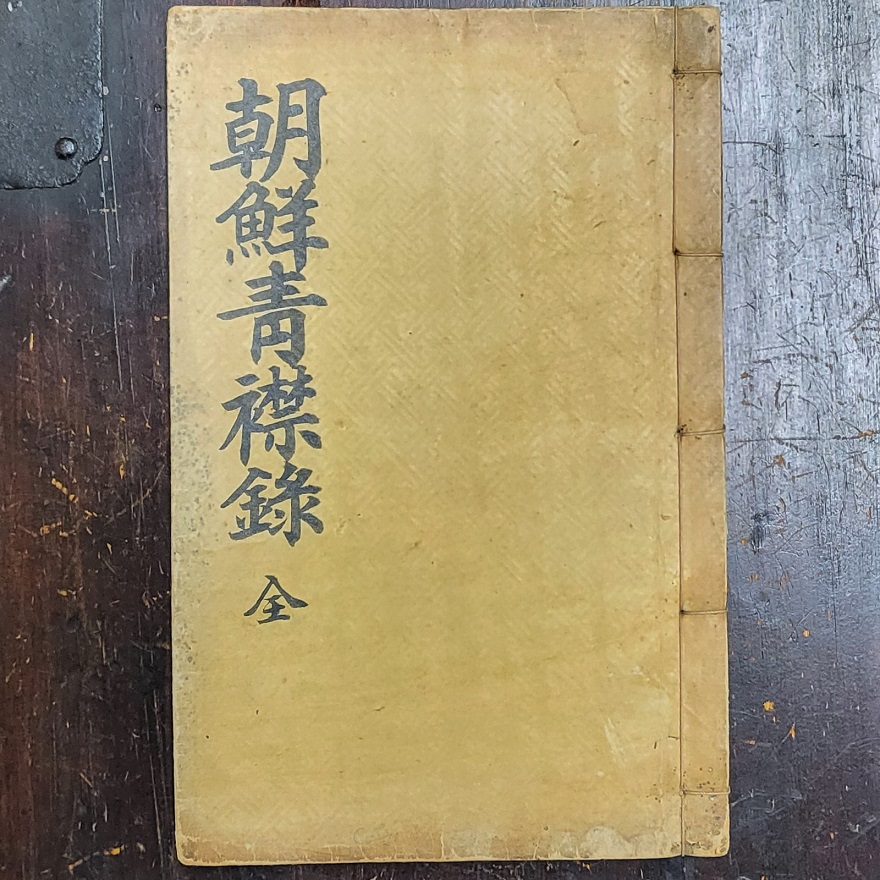 朝鮮青襟錄 全